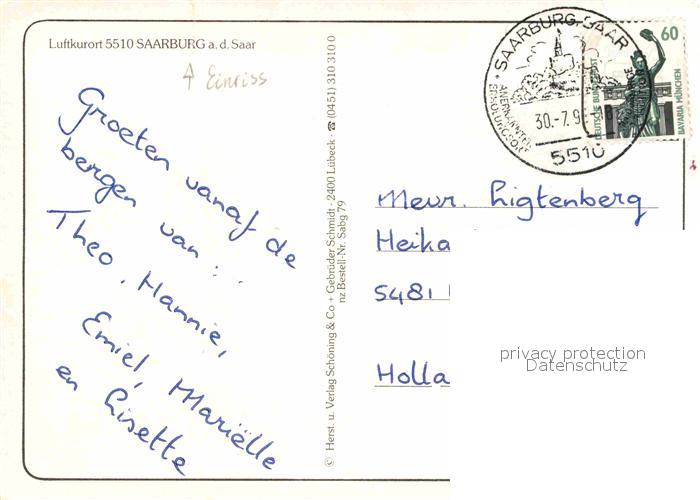 Luftkurort 5510 SAARBURG a. d. Saar
↑ Einriss
Groeten vanaf de
bergen van :
Theo, Hannie,
Emiel, Mariëlle
en Lisette
© Herst. u. Verlag Schöning & Co + Gebrüder Schmidt · 2400 Lübeck · ☎ (0451) 310 310 0
nz Bestell-Nr. Sabg 79
SAARBURG, SAAR
ANERKANNTER
ERHOLUNGSORT
30.-7.9
5510
60
DEUTSCHE BUNDESPOST
BAVARIA MÜNCHEN
Mevr. Ligtenberg
Heika
5481
Holla
privacy protection
Datenschutz